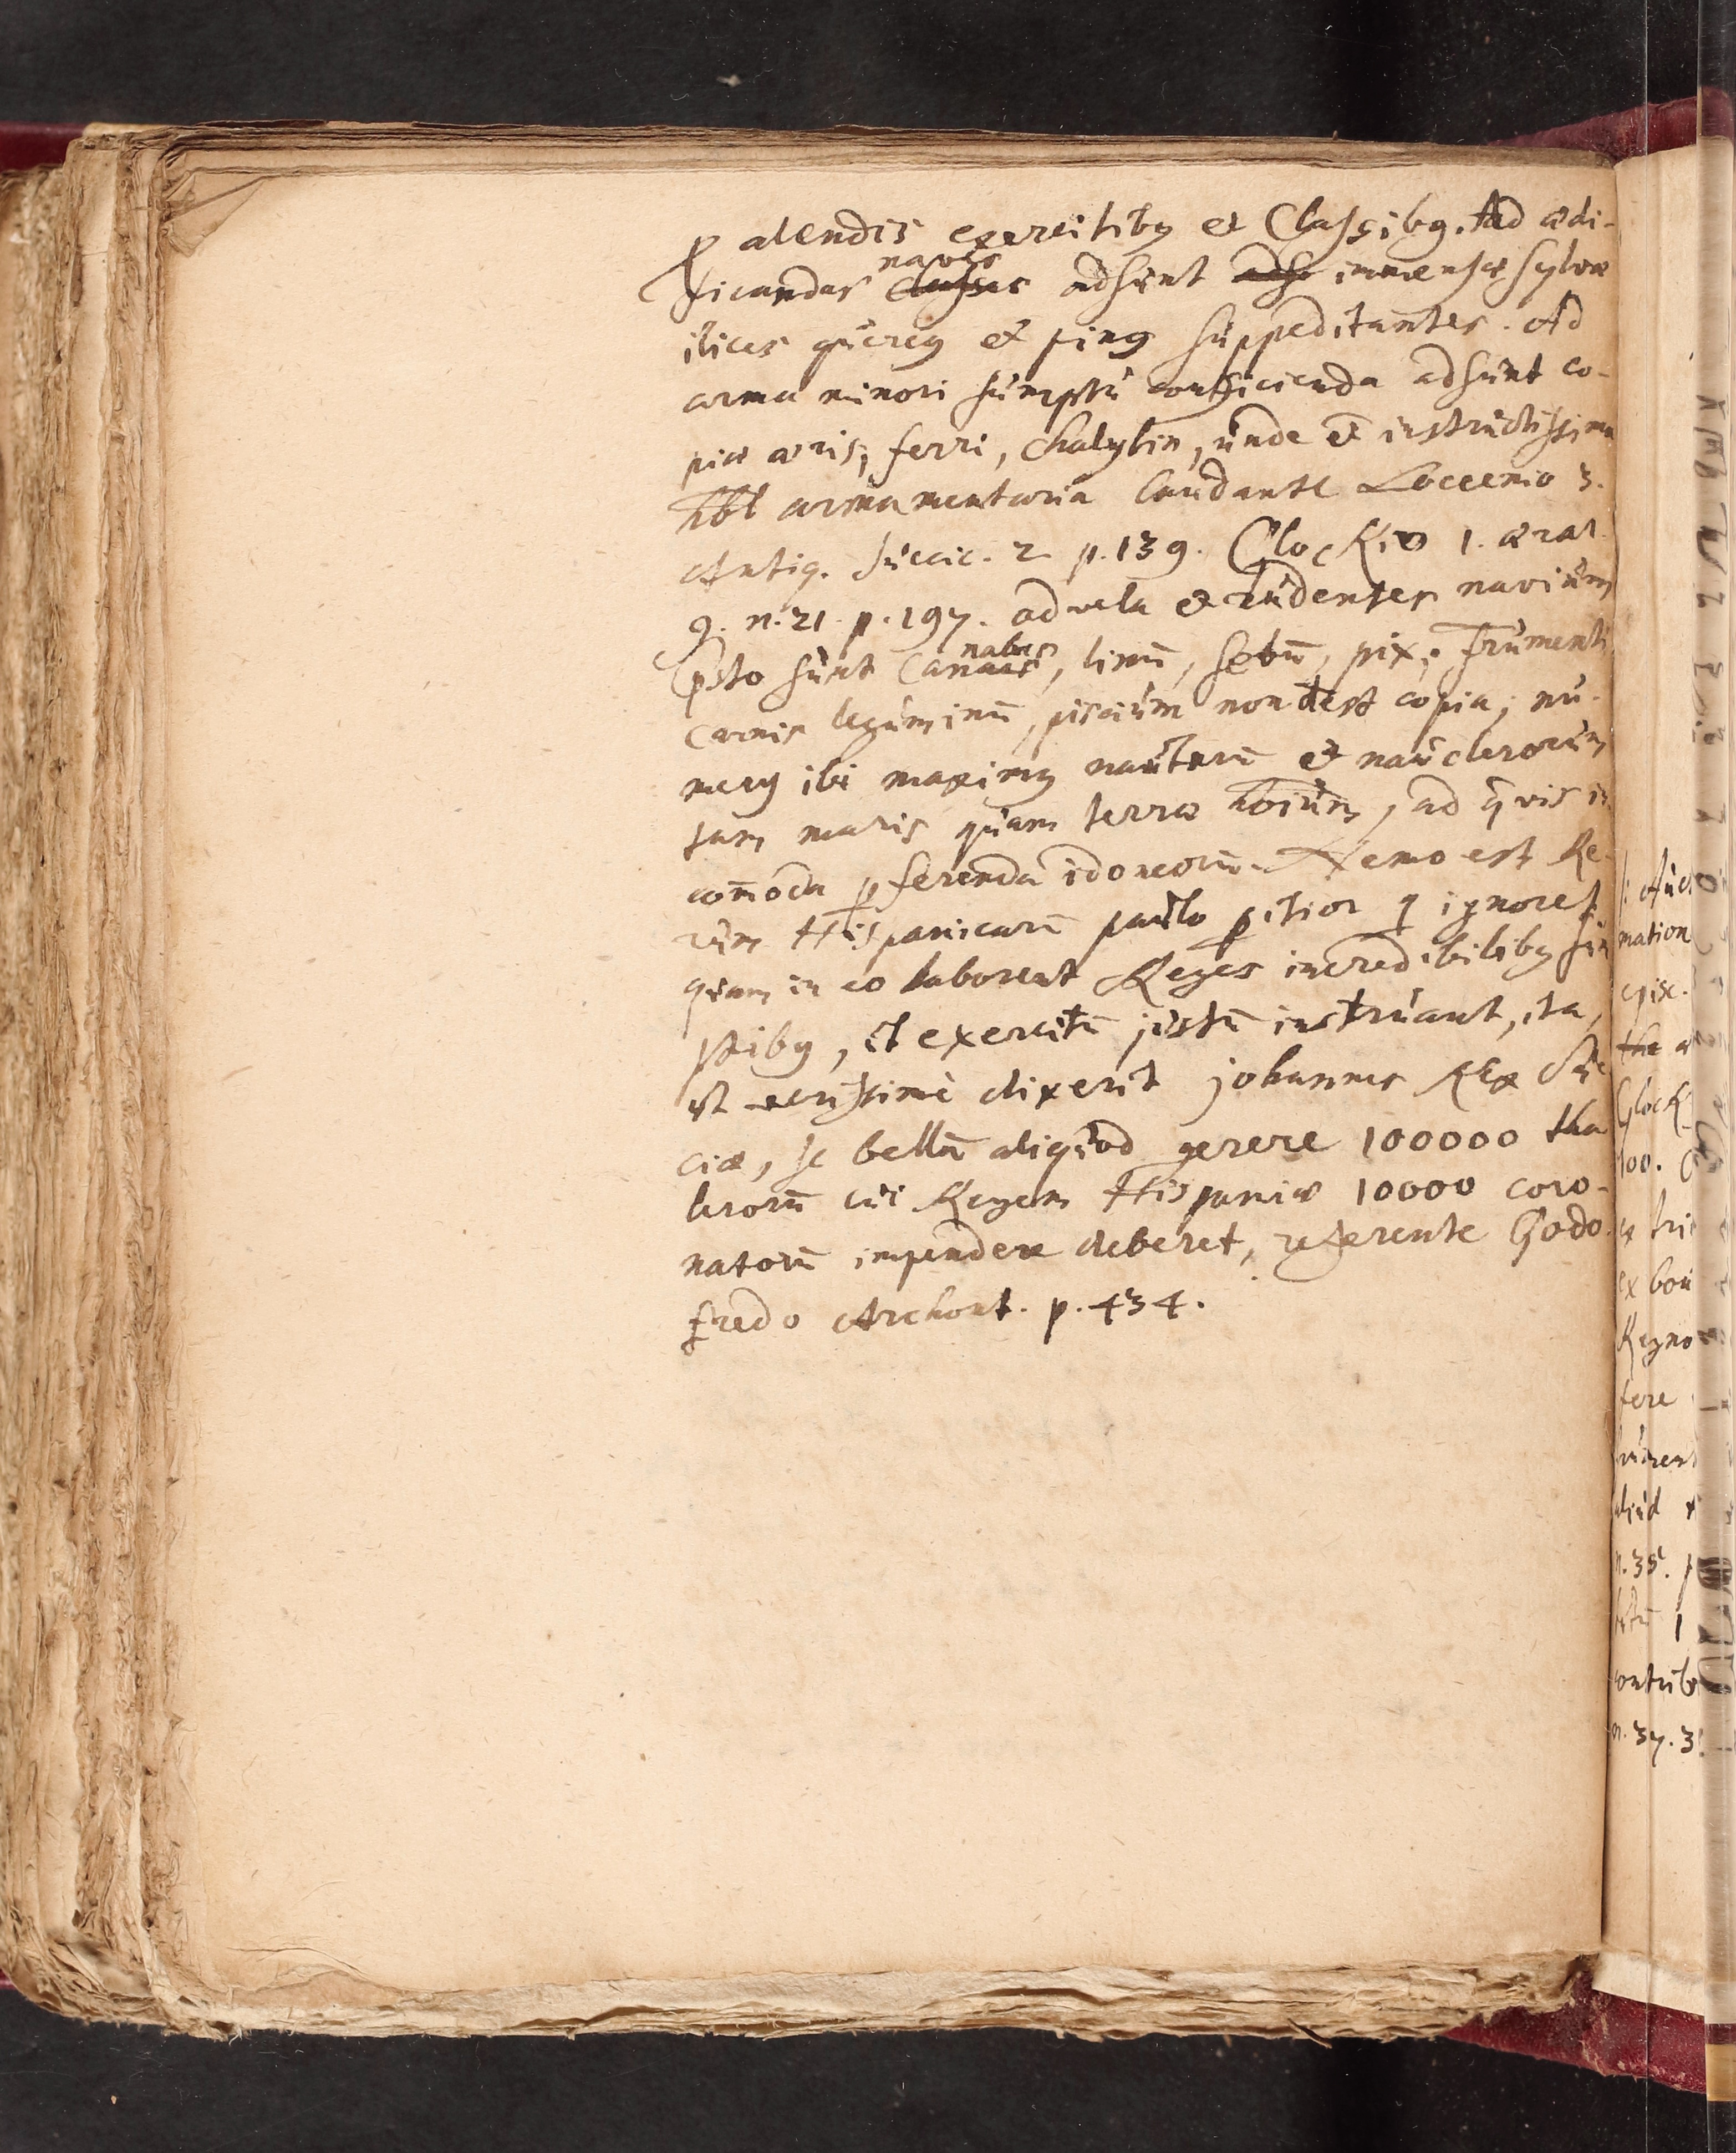 ꝓ alendis exercitibꝯ et Classibꝯ. Ad ædi-
ficandas naves adsunt immensæ sylvæ
ilices quercꝯ et pinꝯ suppeditantes. Ad
arma minori sumptu conficienda adsunt co-
piæ æris, ferri, chalybis, unde et instructissima
hēt armamentaria laudante Loccenio 3.
Antiq. Suecic. 2. p. 139. Clockio 1. ærar.
9. n. 21. p. 197. ad vela et rudentes navium
pstō sunt Cannabes, linū, sebū, pix; frumenti
carnis leguminū, piscium non dest copia; nu-
merꝯ ibi maximꝯ nautarū et nauclerorum
tam maris quam terræ hōium, ad qvis in-
com̄oda ꝑferenda idoneorū. Nemo est Re-
rum Hispanicarū paulo ꝑitior q ignoret
quam in eo laborent Reges incredibilibꝯ sum
ptibꝯ, ut exercitū justū instruant, ita,
ut verissimè dixerit Johannes Rex Sue
ciæ, se bellū aliquod gerere 100000 tha
lerorū cui Regem Hispaniæ 10000 coro-
natorū impendere deberet, referente Godo
fredo Archont. p. 434.